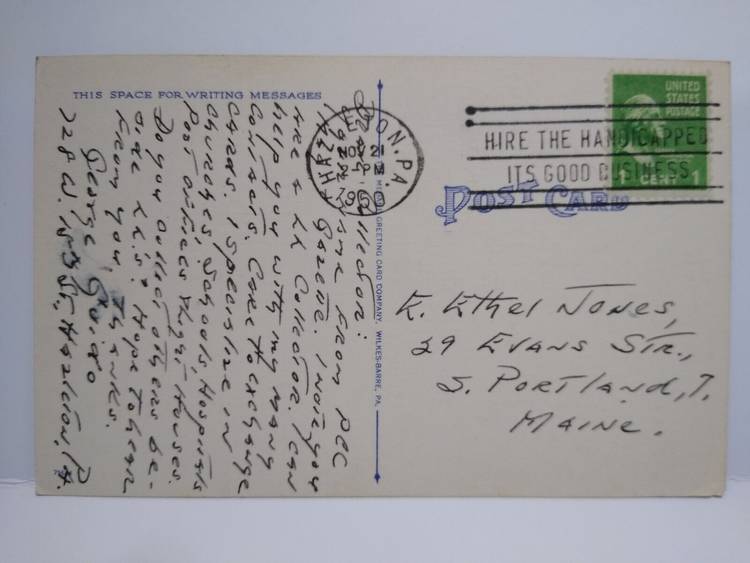 THIS SPACE FOR WRITING MESSAGES
from PCC
Gazette. I note you
are a LL Collector. I can
help you with my many
contacts. Care to exchange
cards. I specialize in
Churches, Schools, Hospitals
Post offices, Houses.
Do you collect others be-
side LL's. Hope to hear
from you. Thanks.
George Guido
728 W. St., Hazleton, Pa.
GREETING CARD COMPANY, WILKES-BARRE, PA.
HAZLETON, PA
21
PM
HIRE THE HANDICAPPED
ITS GOOD BUSINESS
UNITED
STATES
POSTAGE
1 CENT 1
POST CARD
E. Ethel Jones,
29 Evans Str.,
S. Portland, 7.
Maine.